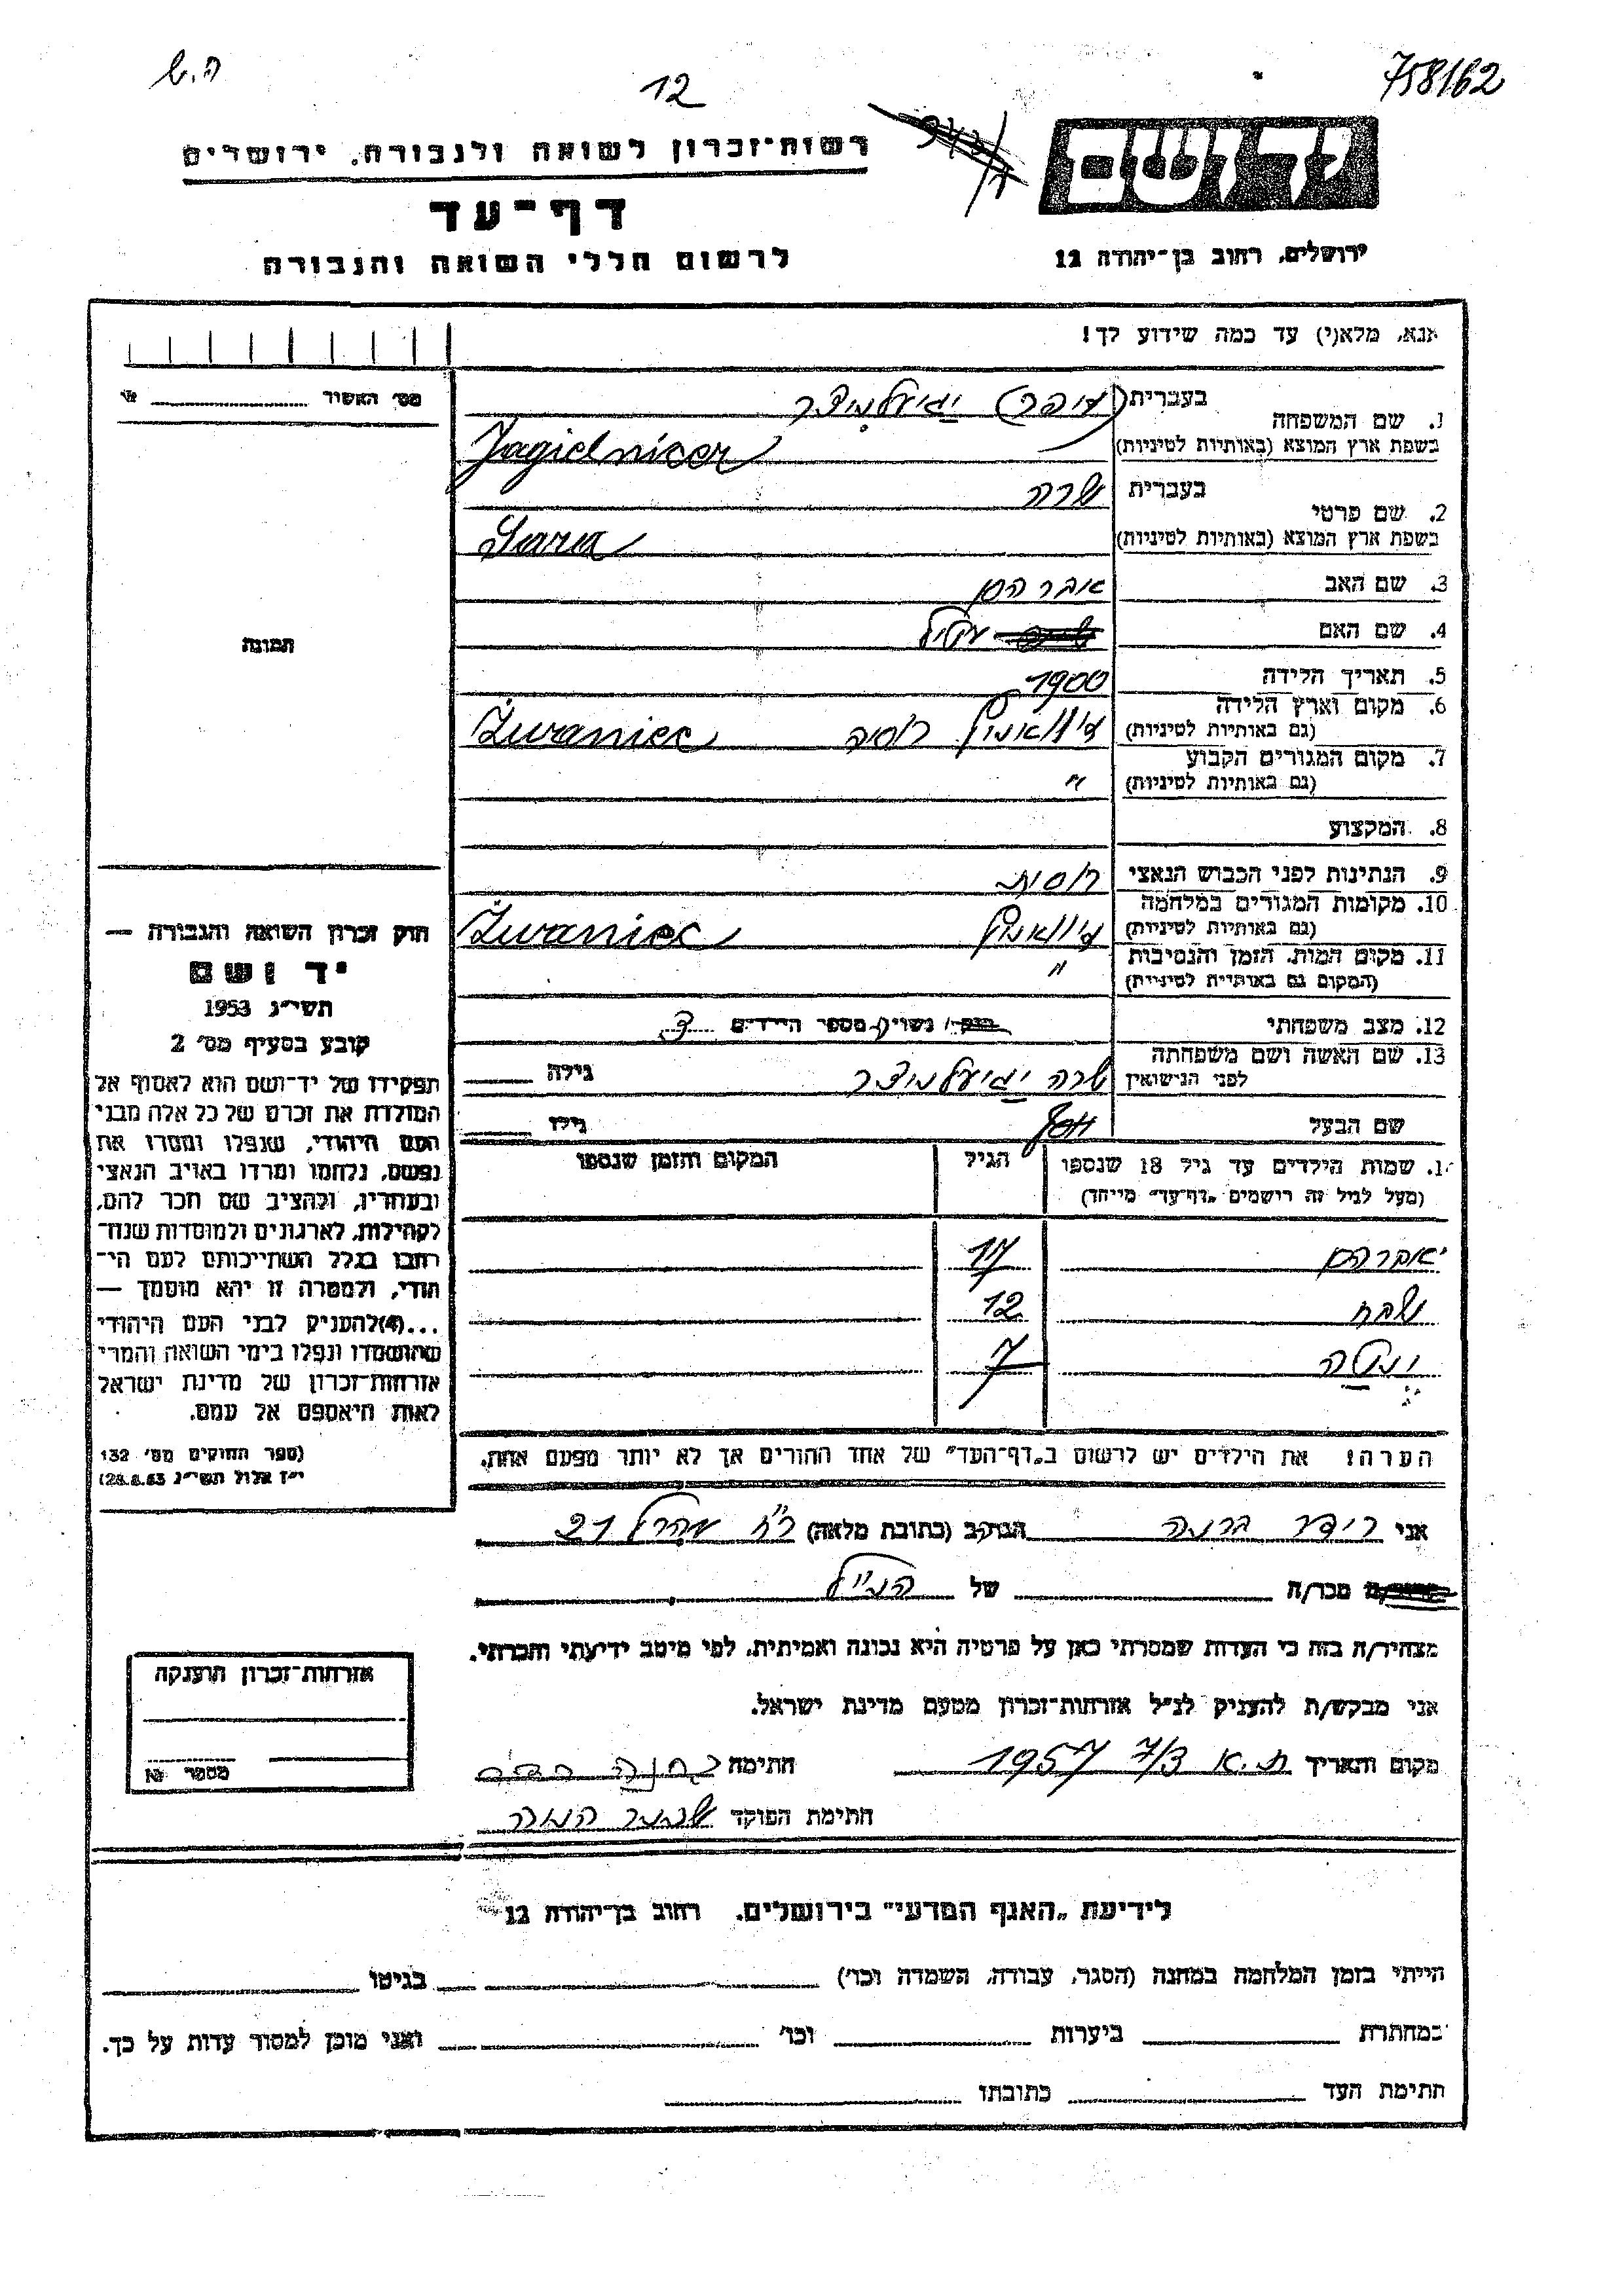 ה.ש
12
758162
יד ושם
רשות־זכרון לשואה ולגבורה, ירושלים
דף־עד
לרשום חללי השואה והגבורה
ירושלים, רחוב בן־יהודה 12
אנא, מלא(י) עד כמה שידוע לך!
מס׳ האשור
1. שם המשפחה
בעברית יגיעלניצר
בשפת ארץ המוצא (באותיות לטיניות) Jagielnicer
2. שם פרטי
בעברית שרה
בשפת ארץ המוצא (באותיות לטיניות) Sara
3. שם האב אברהם
4. שם האם
5. תאריך הלידה 1900
6. מקום וארץ הלידה
(גם באותיות לטיניות) רוסיה Żwaniec
7. מקום המגורים הקבוע
(גם באותיות לטיניות) "
8. המקצוע
9. הנתינות לפני הכבוש הנאצי רוסית
10. מקומות המגורים במלחמה
(גם באותיות לטיניות) Żwaniec
11. מקום המות, הזמן והנסיבות
(המקום גם באותיות לטיניות) "
12. מצב משפחתי נשוי/ מספר הילדים 3
13. שם האשה ושם משפחתה
לפני הנישואין שרה יגיעלניצר גילה
שם הבעל יוסף גילו
תמונה
חוק זכרון השואה והגבורה —
יד ושם
תשי״ג 1953
קובע בסעיף מס׳ 2
תפקידו של יד־ושם הוא לאסוף אל
המולדת את זכרם של כל אלה מבני
העם היהודי, שנפלו ומסרו את
נפשם, נלחמו ומרדו באויב הנאצי
ובעוזריו, ולהציב שם וזכר להם,
לקהילות, לארגונים ולמוסדות שנח־
רבו בגלל השתייכותם לעם הי־
הודי, ולמטרה זו יהא מוסמך —
...(4) להעניק לבני העם היהודי
שהושמדו ונפלו בימי השואה והמרי
אזרחות־זכרון של מדינת ישראל
לאות היאספם אל עמם.
(ספר החוקים מס׳ 132
י״ז אלול תשי״ג 28.8.53)
14. שמות הילדים עד גיל 18 שנספו
(מעל לגיל זה רושמים ״דף־עד״ מיוחד)
הגיל
המקום והזמן שנספו
אברהם 17
שבח 12
7
הערה: את הילדים יש לרשום ב״דף־העד״ של אחד ההורים אך לא יותר מפעם אחת.
אני רידר ברנה הגר/ב (כתובת מלאה) רח׳ 21
מכר/ה של הנ״ל
מצהיר/ה בזה כי העדות שמסרתי כאן על פרטיה היא נכונה ואמיתית, לפי מיטב ידיעתי והכרתי.
אני מבקש/ת להעניק לנ״ל אזרחות־זכרון מטעם מדינת ישראל.
מקום ותאריך ת.א 7/3 1957 חתימה
חתימת הפוקד
אזרחות־זכרון הוענקה
מספר
לידיעת ״האגף המדעי״ בירושלים, רחוב בן־יהודה 12
הייתי בזמן המלחמה במחנה (הסגר, עבודה, השמדה וכו׳) בגיטו
במחתרת ביערות וכו׳ ואני מוכן למסור עדות על כך.
חתימת העד כתובתו